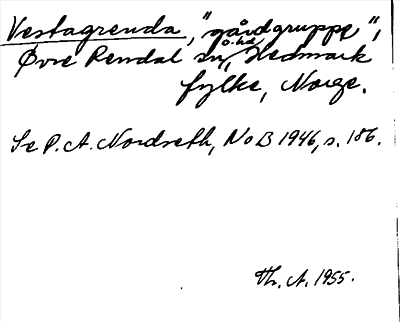 Vestagrenda, "gårdgruppe",
Øvre Rendal sn, Hedmark
fylke, Norge.
Se P. A. Nordseth, NoB 1946, s. 186.
Th. A. 1955.